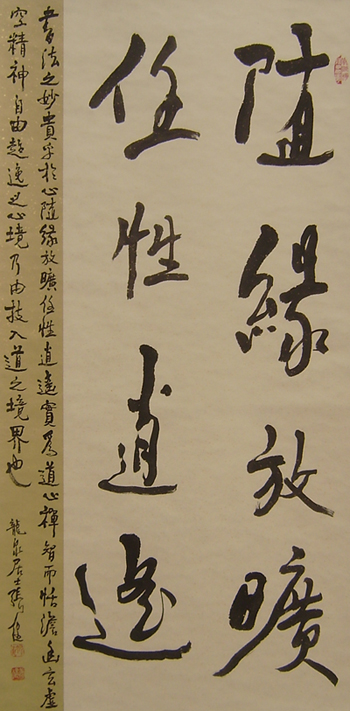 隨緣放曠
任性逍遙
書法之妙貴乎於心隨緣放曠任性逍遙實為道心禪智而恬澹幽玄虛
空精神自由超逸之心境乃由技入道之境界也
龍泉居士